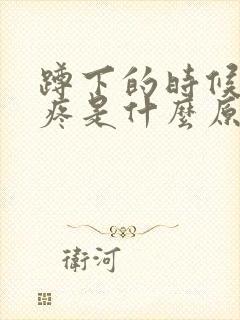 蹲下的時候
疼是什麼原
衛河